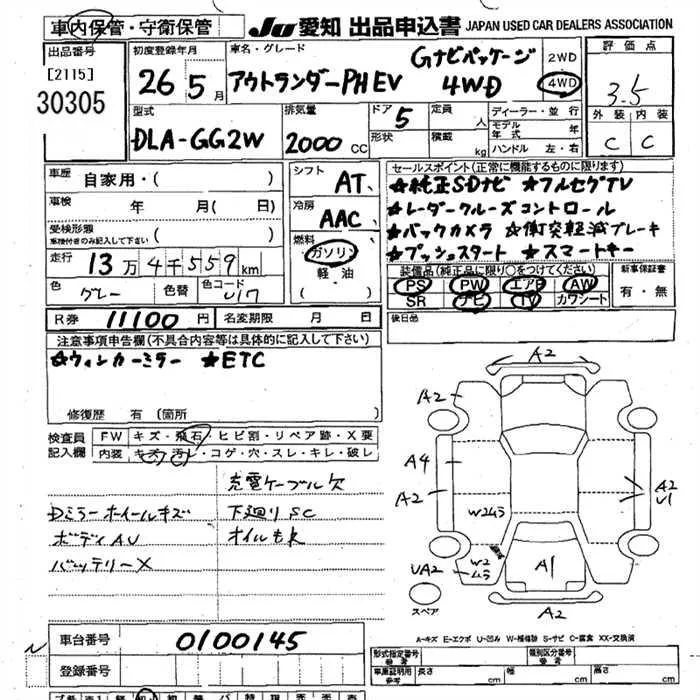 車内保管・守衛保管
JU 愛知 出品申込書 JAPAN USED CAR DEALERS ASSOCIATION
出品番号
[2115]
30305
初度登録年月
26 5月
車名・グレード
アウトランダーPHEV Gナビパッケージ 4WD
2WD
4WD
評価点
3.5
外装 内装
C C
型式
DLA-GG2W
排気量
2000 CC
ドア 5
形状
定員 人
積載 kg
ディーラー・並行
モデル年式 年
ハンドル 左・右
車歴
自家用・( )
車検 年 月( 日)
受検形態
車検付きのみ記入して下さい
走行 13万4千559km
色 グレー
色替
色コード U17
シフト AT
冷房 AAC
燃料
ガソリン
軽・油
セールスポイント(正常に機能するものに限ります)
☆純正SDナビ ☆フルセグTV
☆レーダークルーズコントロール
☆バックカメラ ☆衝突軽減ブレーキ
☆プッシュスタート ☆スマートキー
装備品(純正品に限り○をつけてください)
PS PW エアB AW
SR ナビ TV カワシート
新車保証書
有・無
R券 11100円
名変期限 月 日
後日品
注意事項申告欄(不具合内容等は具体的に記入して下さい)
☆ウィンカーミラー ☆ETC
修復歴 有(箇所
検査員
記入欄
FW キズ・飛石・ヒビ割・リペア跡・X要
内装 キズ・汚レ・コゲ・穴・スレ・キレ・破レ
充電ケーブル欠
Dミラーホイールキズ 下廻りSC
ボディAU オイルもれ
バッテリーX
A2
A2
A4
A2
A2
U1
W2ムラ
UA2
W2
ムラ
A1
A2
スペア
A-キズ E-エクボ U-凹み W-補修跡 S-サビ C-腐食 XX-交換済
車台番号 0100145
登録番号
型式指定番号
参考
類別区分番号
参考
車庫証明用
参考
長さ cm
幅 cm
高さ cm